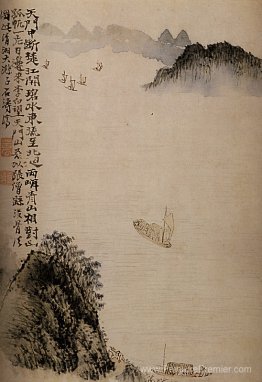 天門中斷楚江開碧水東流至北迴兩岸青山相對出
孤帆一片日邊來李白望天門山 以張僧繇沒骨法
圖此清湘大滌子石濤濟